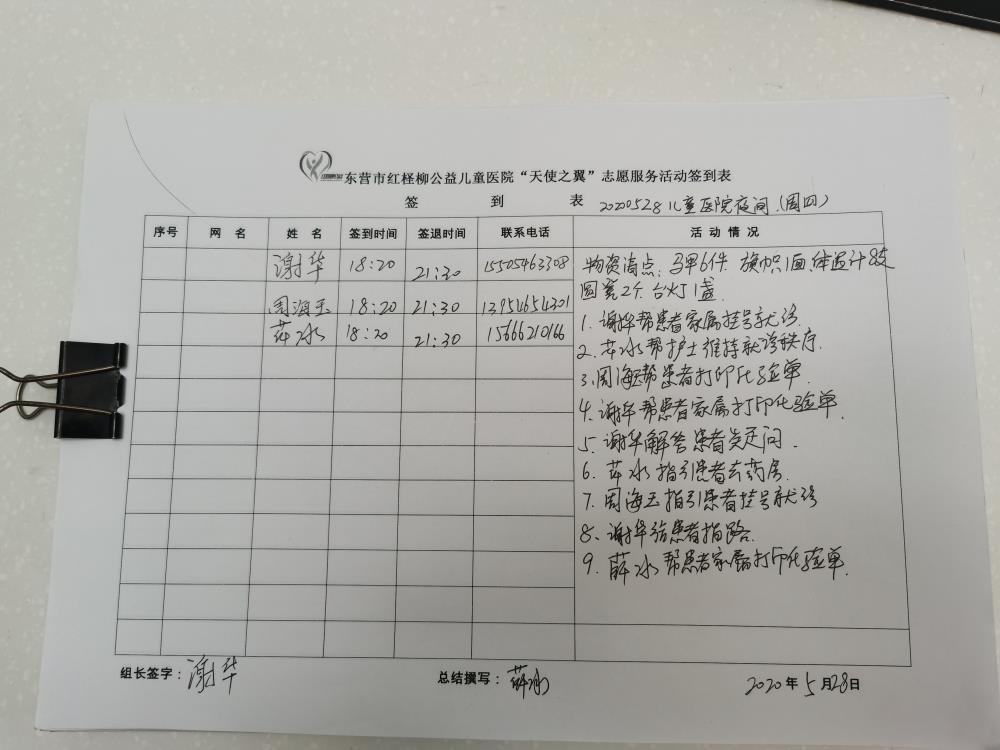 东营市红柽柳公益儿童医院“天使之翼”志愿服务活动签到表
签 到 表 20200528儿童医院夜间(周四)
序号 网 名 姓 名 签到时间 签退时间 联系电话 活 动 情 况
谢华 18:20 21:30 15505463308
周海玉 18:20 21:30 13954654301
苹冰 18:20 21:30 15666210166
物资清点:马甲6件 旗帜1面、体温计8支
圆凳2个 台灯1盏
1. 谢华帮患者家属挂号就诊.
2. 苹冰帮护士维持就诊秩序.
3. 周海玉帮患者打印化验单.
4. 谢华帮患者家属打印化验单.
5. 谢华解答患者疑问.
6. 苹冰指引患者去药房.
7. 周海玉指引患者挂号就诊
8. 谢华给患者指路.
9. 薛冰帮患者家属打印化验单.
组长签字:谢华 总结撰写:薛冰 2020年5月28日